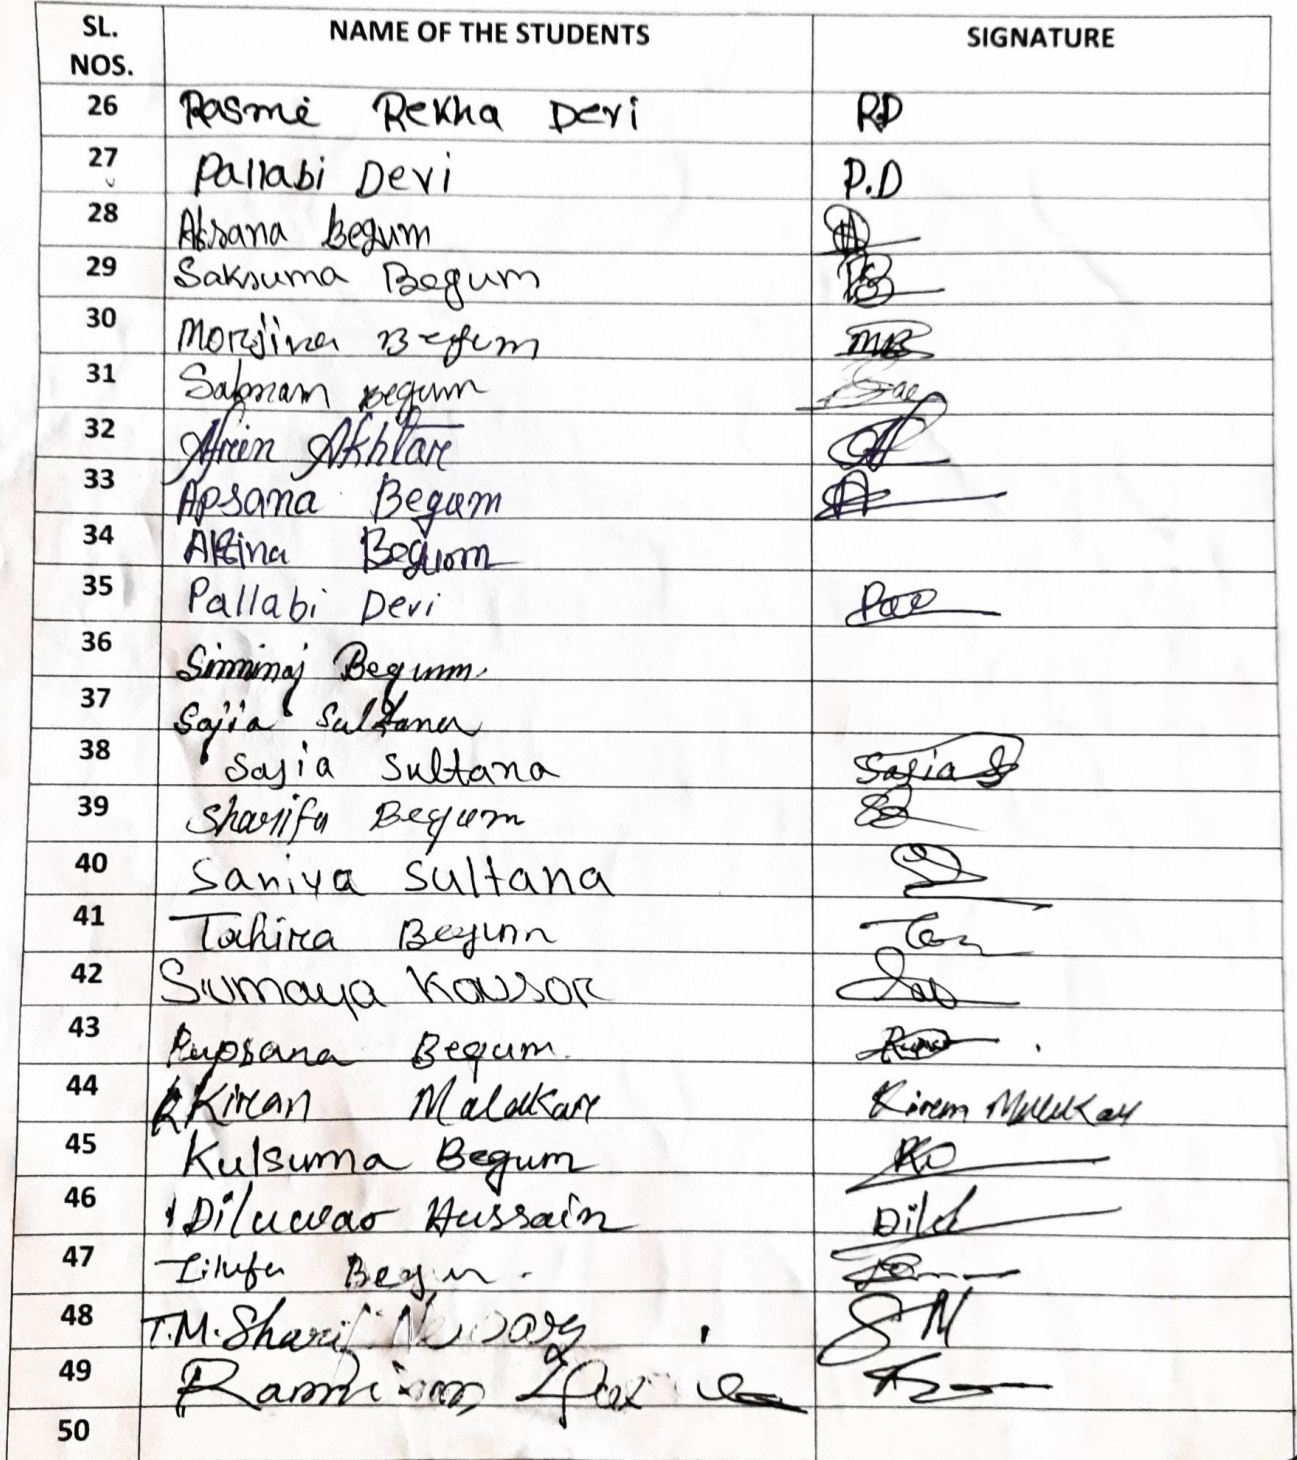 SL. NOS. NAME OF THE STUDENTS SIGNATURE
26 Rasmi Rekha Devi RD
27 Pallabi Devi P.D
28 Afsana Begum
29 Saksuma Begum
30 Morjina Begum MB
31 Sabnam Begum
32 Afrin Akhtar
33 Apsana Begum
34 Begum
35 Pallabi Devi
36 Siminaj Begum
37 Sajia Sultana
38 Sajia Sultana Sajia S
39 Sharifa Begum
40 Saniya Sultana
41 Tahira Begum
42 Sumaya Kousor
43 Rupsana Begum.
44 Kiran Malakar Kiran Malakar
45 Kulsuma Begum
46 Hussain
47 Begum
48 T.M. Sharif SM
49
50